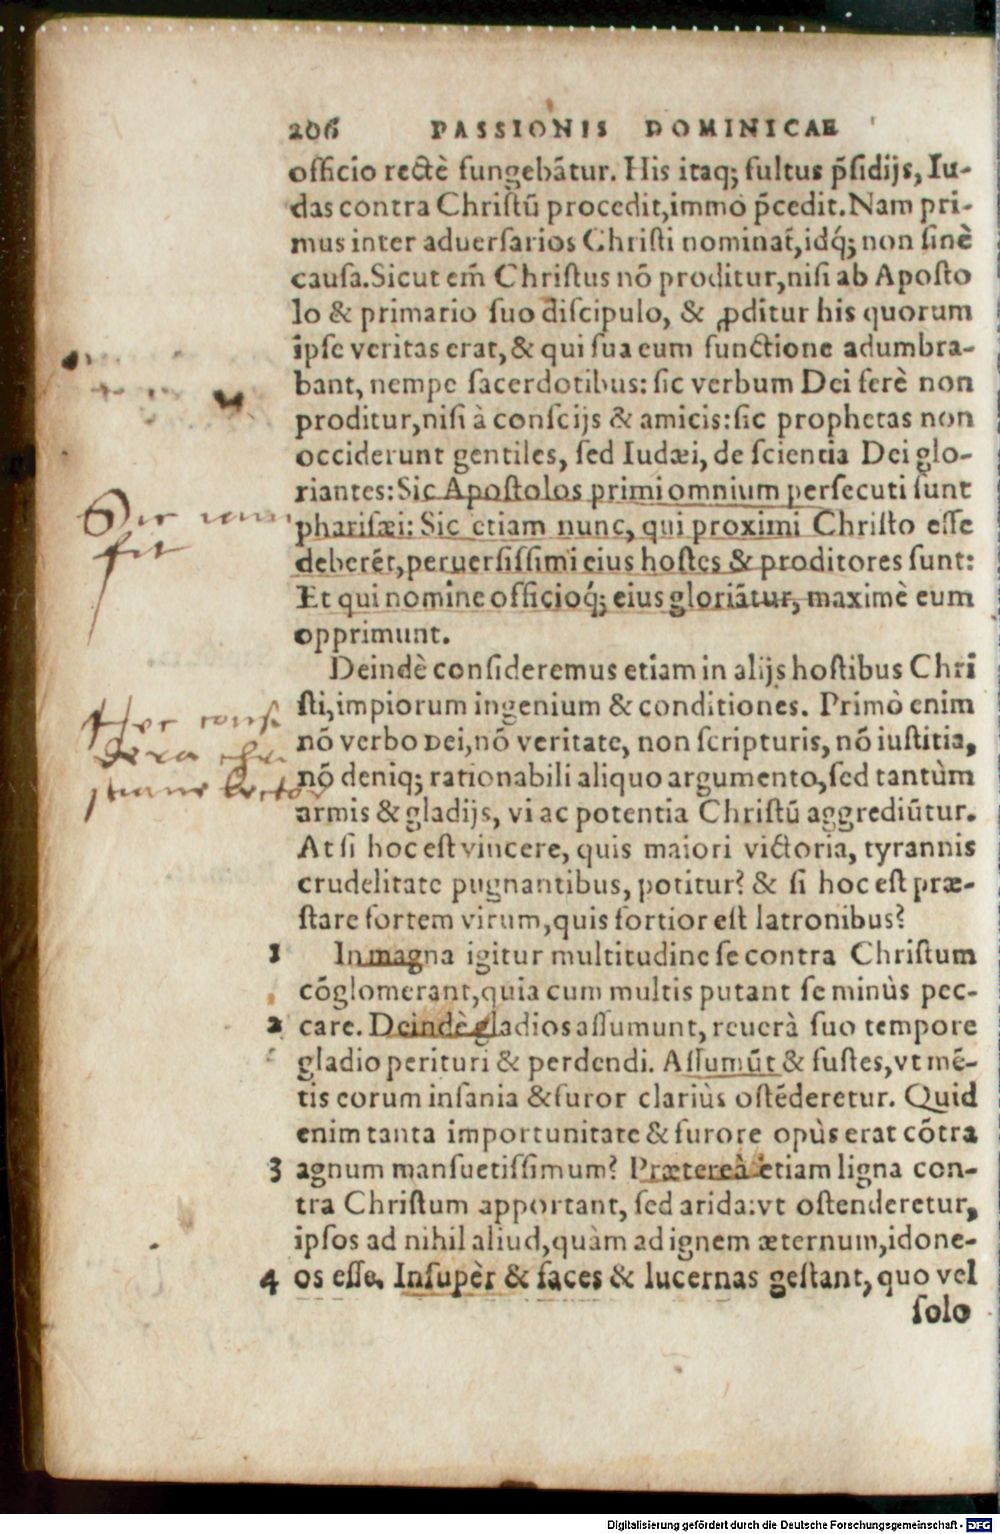 206 PASSIONIS DOMINICAE
officio rectè fungebãtur. His itaq; fultus p̃sidijs, Iu-
das contra Christũ procedit, immò p̃cedit. Nam pri-
mus inter aduersarios Christi nominat̃, idq́; non sinè
causa. Sicut em̃ Christus nõ proditur, nisi ab Aposto
lo & primario suo discipulo, & ꝓditur his quorum
ipse veritas erat, & qui sua eum functione adumbra-
bant, nempe sacerdotibus: sic verbum Dei ferè non
proditur, nisi à conscijs & amicis: sic prophetas non
occiderunt gentiles, sed Iudæi, de scientia Dei glo-
riantes: Sic Apostolos primi omnium persecuti sunt
pharisæi: Sic etiam nunc, qui proximi Christo esse
deberẽt, peruersissimi eius hostes & proditores sunt:
Et qui nomine officioq́; eius gloriãtur, maximè eum
opprimunt.
Sic iam
fit
Deindè consideremus etiam in alijs hostibus Chri
sti, impiorum ingenium & conditiones. Primò enim
nõ verbo Dei, nõ veritate, non scripturis, nõ iustitia,
nõ deniq; rationabili aliquo argumento, sed tantùm
armis & gladijs, vi ac potentia Christũ aggrediũtur.
At si hoc est vincere, quis maiori victoria, tyrannis
crudelitate pugnantibus, potitur? & si hoc est præ-
stare fortem virum, quis fortior est latronibus?
Hec consi
dera chri
stiane lector
1 In magna igitur multitudine se contra Christum
cõglomerant, quia cum multis putant se minùs pec-
2 care. Deindè gladios assumunt, reuerà suo tempore
gladio perituri & perdendi. Assumũt & fustes, vt mẽ-
tis eorum insania & furor clariùs ostẽderetur. Quid
enim tanta importunitate & furore opùs erat cõtra
3 agnum mansuetissimum? Prætereà etiam ligna con-
tra Christum apportant, sed arida: vt ostenderetur,
ipsos ad nihil aliud, quàm ad ignem æternum, idone-
4 os esse. Insupèr & faces & lucernas gestant, quo vel
solo
Digitalisierung gefördert durch die Deutsche Forschungsgemeinschaft - DFG